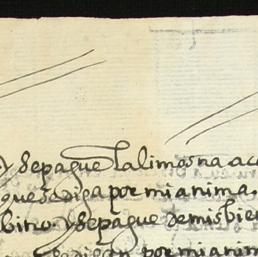 y se pague la limosna a co
que se diga por mi anima.
bino. y se pague de mis bie
se digan por mi anim